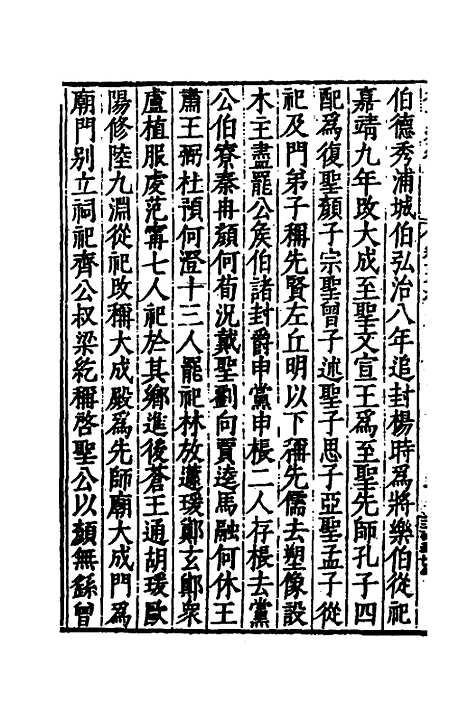 伯德秀浦城伯弘治八年追封楊時爲將樂伯從祀
嘉靖九年改大成至聖文宣王爲至聖先師孔子四
配爲復聖顏子宗聖曾子述聖子思子亞聖孟子從
祀及門弟子稱先賢左丘明以下稱先儒去塑像設
木主盡罷公矦伯諸封爵申黨申棖二人存棖去黨
公伯寮秦冉顏何荀況戴聖劉向賈逵馬融何休王
肅王弼杜預何澄十三人罷祀林放蘧瑗鄭玄鄭衆
盧植服虔范甯七人祀於其鄉進後蒼王通胡瑗歐
陽修陸九淵從祀改稱大成殿爲先師廟大成門爲
廟門别立祠祀齊公叔梁紇稱啓聖公以顏無繇曾